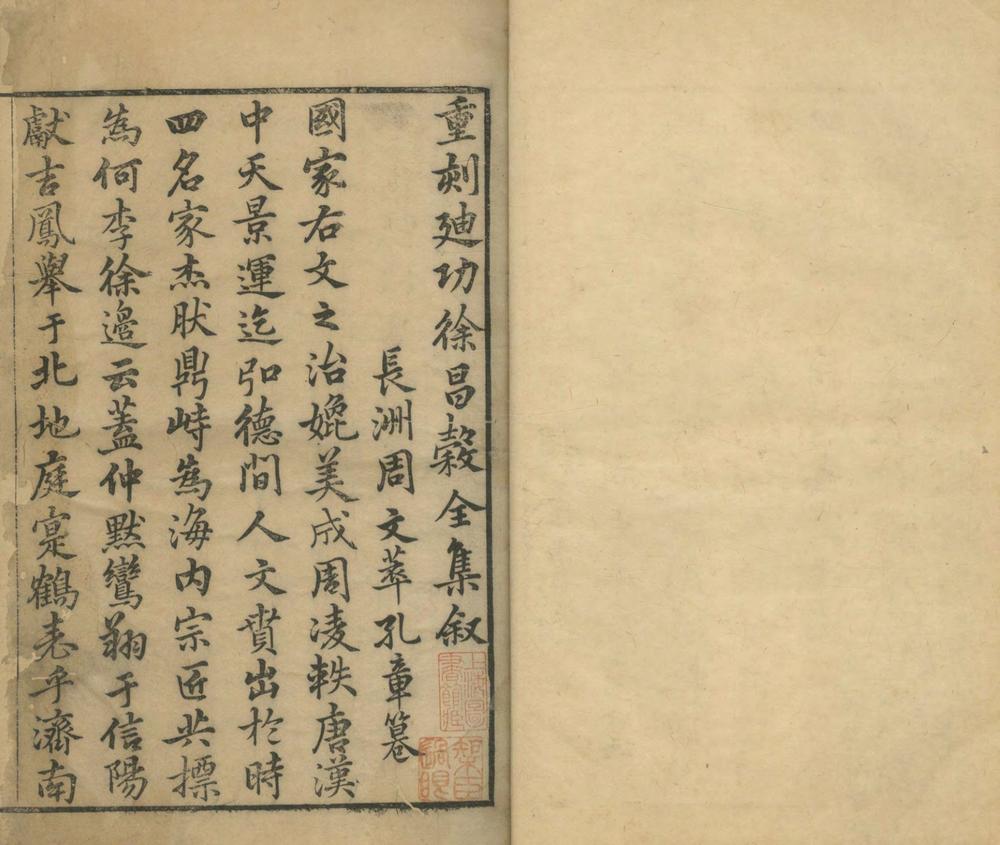 重刻廸功徐昌穀全集叙
長洲周文萃孔章篹
國家右文之治媲美成周凌軼唐漢
中天景運迄弘德間人文賁出於時
四名家杰肰鼎峙為海内宗匠共摽
為何李徐邉云蓋仲默鸞翔于信陽
獻吉鳳舉于北地庭寔鶴㐵乎濟南